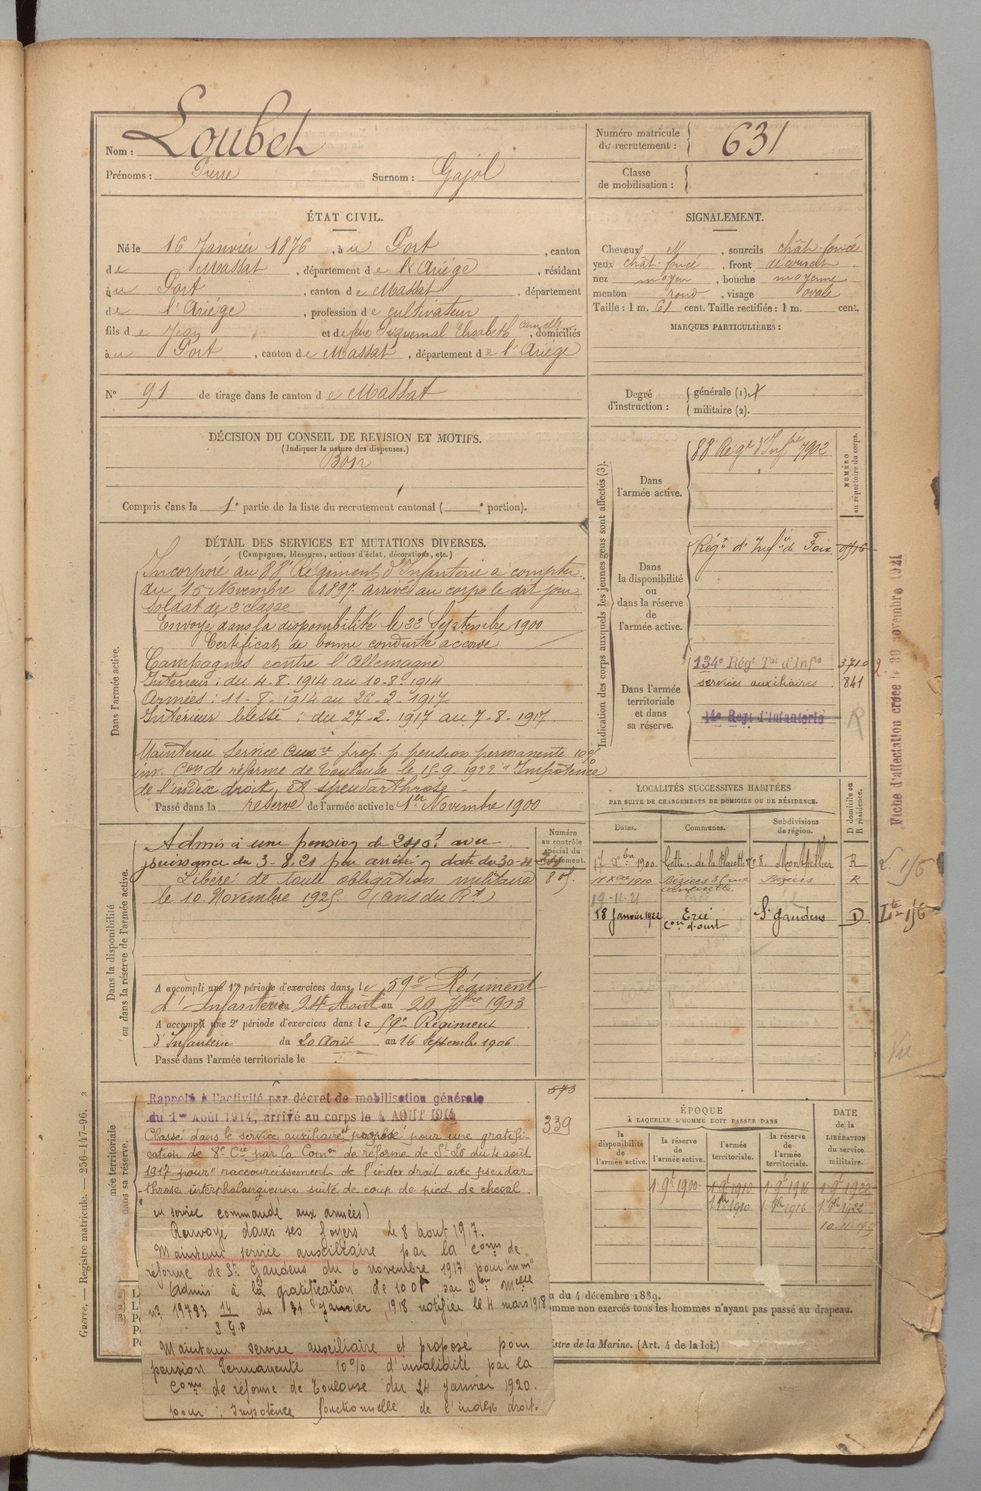 Nom : Loubet
Prénoms : Pierre Surnom : Gajol
Numéro matricule du recrutement : 631
Classe de mobilisation :
ÉTAT CIVIL.
Né le 16 Janvier 1876, à u Port, canton
de Massat, département de l'Ariège, résidant
à u Port, canton de Massat, département
de l'Ariège, profession de cultivateur
fils de Jean et de feue Piquemal Elisabeth, domiciliés
à u Port, canton de Massat, département de l'Ariège
N° 91 de tirage dans le canton de Massat
SIGNALEMENT.
Cheveux N, sourcils chât. foncé
yeux chât. foncé, front découvert
nez moyen, bouche moyenne
menton rond, visage ovale
Taille : 1 m. 61 cent. Taille rectifiée : 1 m. cent.
MARQUES PARTICULIÈRES :
Degré d'instruction : générale (1).
militaire (2).
DÉCISION DU CONSEIL DE REVISION ET MOTIFS.
(Indiquer la nature des dispenses.)
Bon
Compris dans la 1e partie de la liste du recrutement cantonal ( e portion).
DÉTAIL DES SERVICES ET MUTATIONS DIVERSES.
(Campagnes, blessures, actions d'éclat, décorations, etc.)
Dans l'armée active.
Incorporé au 88e Régiment d'Infanterie à compter
du 15 Novembre 1897. arrivé au corps le dit jour
soldat de 2e classe
Envoyé dans la disponibilité le 22 Septembre 1900
Certificat de bonne conduite accordé
Campagnes contre l'Allemagne
Intérieur : du 4-8-1914 au 10-8-1914
Armées : 11-8-1914 au 26-2-1917
Intérieur blessé : du 27-2-1917 au 7-8-1917
Maintenu service aux re prop. p. pension permanente 10%
inv. Con de réforme de Toulouse le 15-9-1922 "Impotence
de l'index droit, et speudarthrose -
Passé dans la réserve de l'armée active le 1er Novembre 1900
Indication des corps auxquels les jeunes gens sont affectés (3).
NUMÉRO au répertoire du corps.
Dans l'armée active.
88 Régt d'Infrie 7902
Dans la disponibilité ou dans la réserve de l'armée active.
Régt d'Infie de Foix
Dans l'armée territoriale et dans sa réserve.
134e Régt Tal d'Infie 3710
services auxiliaires 841
14e Régt d'Infanterie R
Fiche d'affectation créée le 30 novembre 1921
Dans la disponibilité ou dans la réserve de l'armée active.
Numéro au contrôle spécial du département.
Admis à une pension de 240f. avec
jouissance du 3-8-21 par arrêté en date du 30-4
Libéré de toute obligation militaire
le 10 Novembre 1925
A accompli une 1re période d'exercices dans le 59e Régiment
d'Infanterie du 24 Aout au 20 7bre 1903
A accompli une 2e période d'exercices dans le 59e Régiment
d'Infanterie du 20 Août au 16 Septembre 1906
Passé dans l'armée territoriale le
LOCALITÉS SUCCESSIVES HABITÉES
PAR SUITE DE CHANGEMENTS DE DOMICILE OU DE RÉSIDENCE.
Dates. Communes. Subdivisions de région. D domicile ou R résidence.
1900 Montpellier R
1910 Béziers Béziers R
19-11-21
18 Janvier 1922 Ercé Con d'oust St Gaudens D
Vu
573
339
Rappelé à l'activité par décret de mobilisation générale
du 1er Août 1914, arrivé au corps le 4 AOUT 1914
Classé dans le service auxiliaire et proposé pour une gratifi-
cation de 8e Cie par la Comon de réforme de St Lô du 4 août
1917 pour "raccourcissement de l'index droit avec pseudar-
throse interphalangienne suite de coup de pied de cheval
en service commandé aux armées)
Renvoyé dans ses foyers le 8 aout 1917.
Maintenu service auxiliaire par la Comon de
réforme de St Gaudens du 6 novembre 1917 pour
Admis à la gratification de 100f par Don Melle
n° 19783 du 31 Janvier 1918 notifiée le 4 mars 1918
Maintenu service auxiliaire et proposé pour
pension Permanente 10% d'invalidité par la
Comon de réforme de Toulouse du 24 Janvier 1920.
pour : Impotence fonctionnelle de l'index droit.
ÉPOQUE
À LAQUELLE L'HOMME DOIT PASSER DANS
la disponibilité de l'armée active. la réserve de l'armée active. l'armée territoriale. la réserve de l'armée territoriale. DATE de la LIBÉRATION du service militaire.
1 9bre 1900 1 9bre 1910 1 9bre 1916 1 9bre 1922
u du 4 décembre 1889.
omme non exercés tous les hommes n'ayant pas passé au drapeau.
istre de la Marine. (Art. 4 de la loi.)
Guerre. — Registre matricule. — 256-147-96. 2